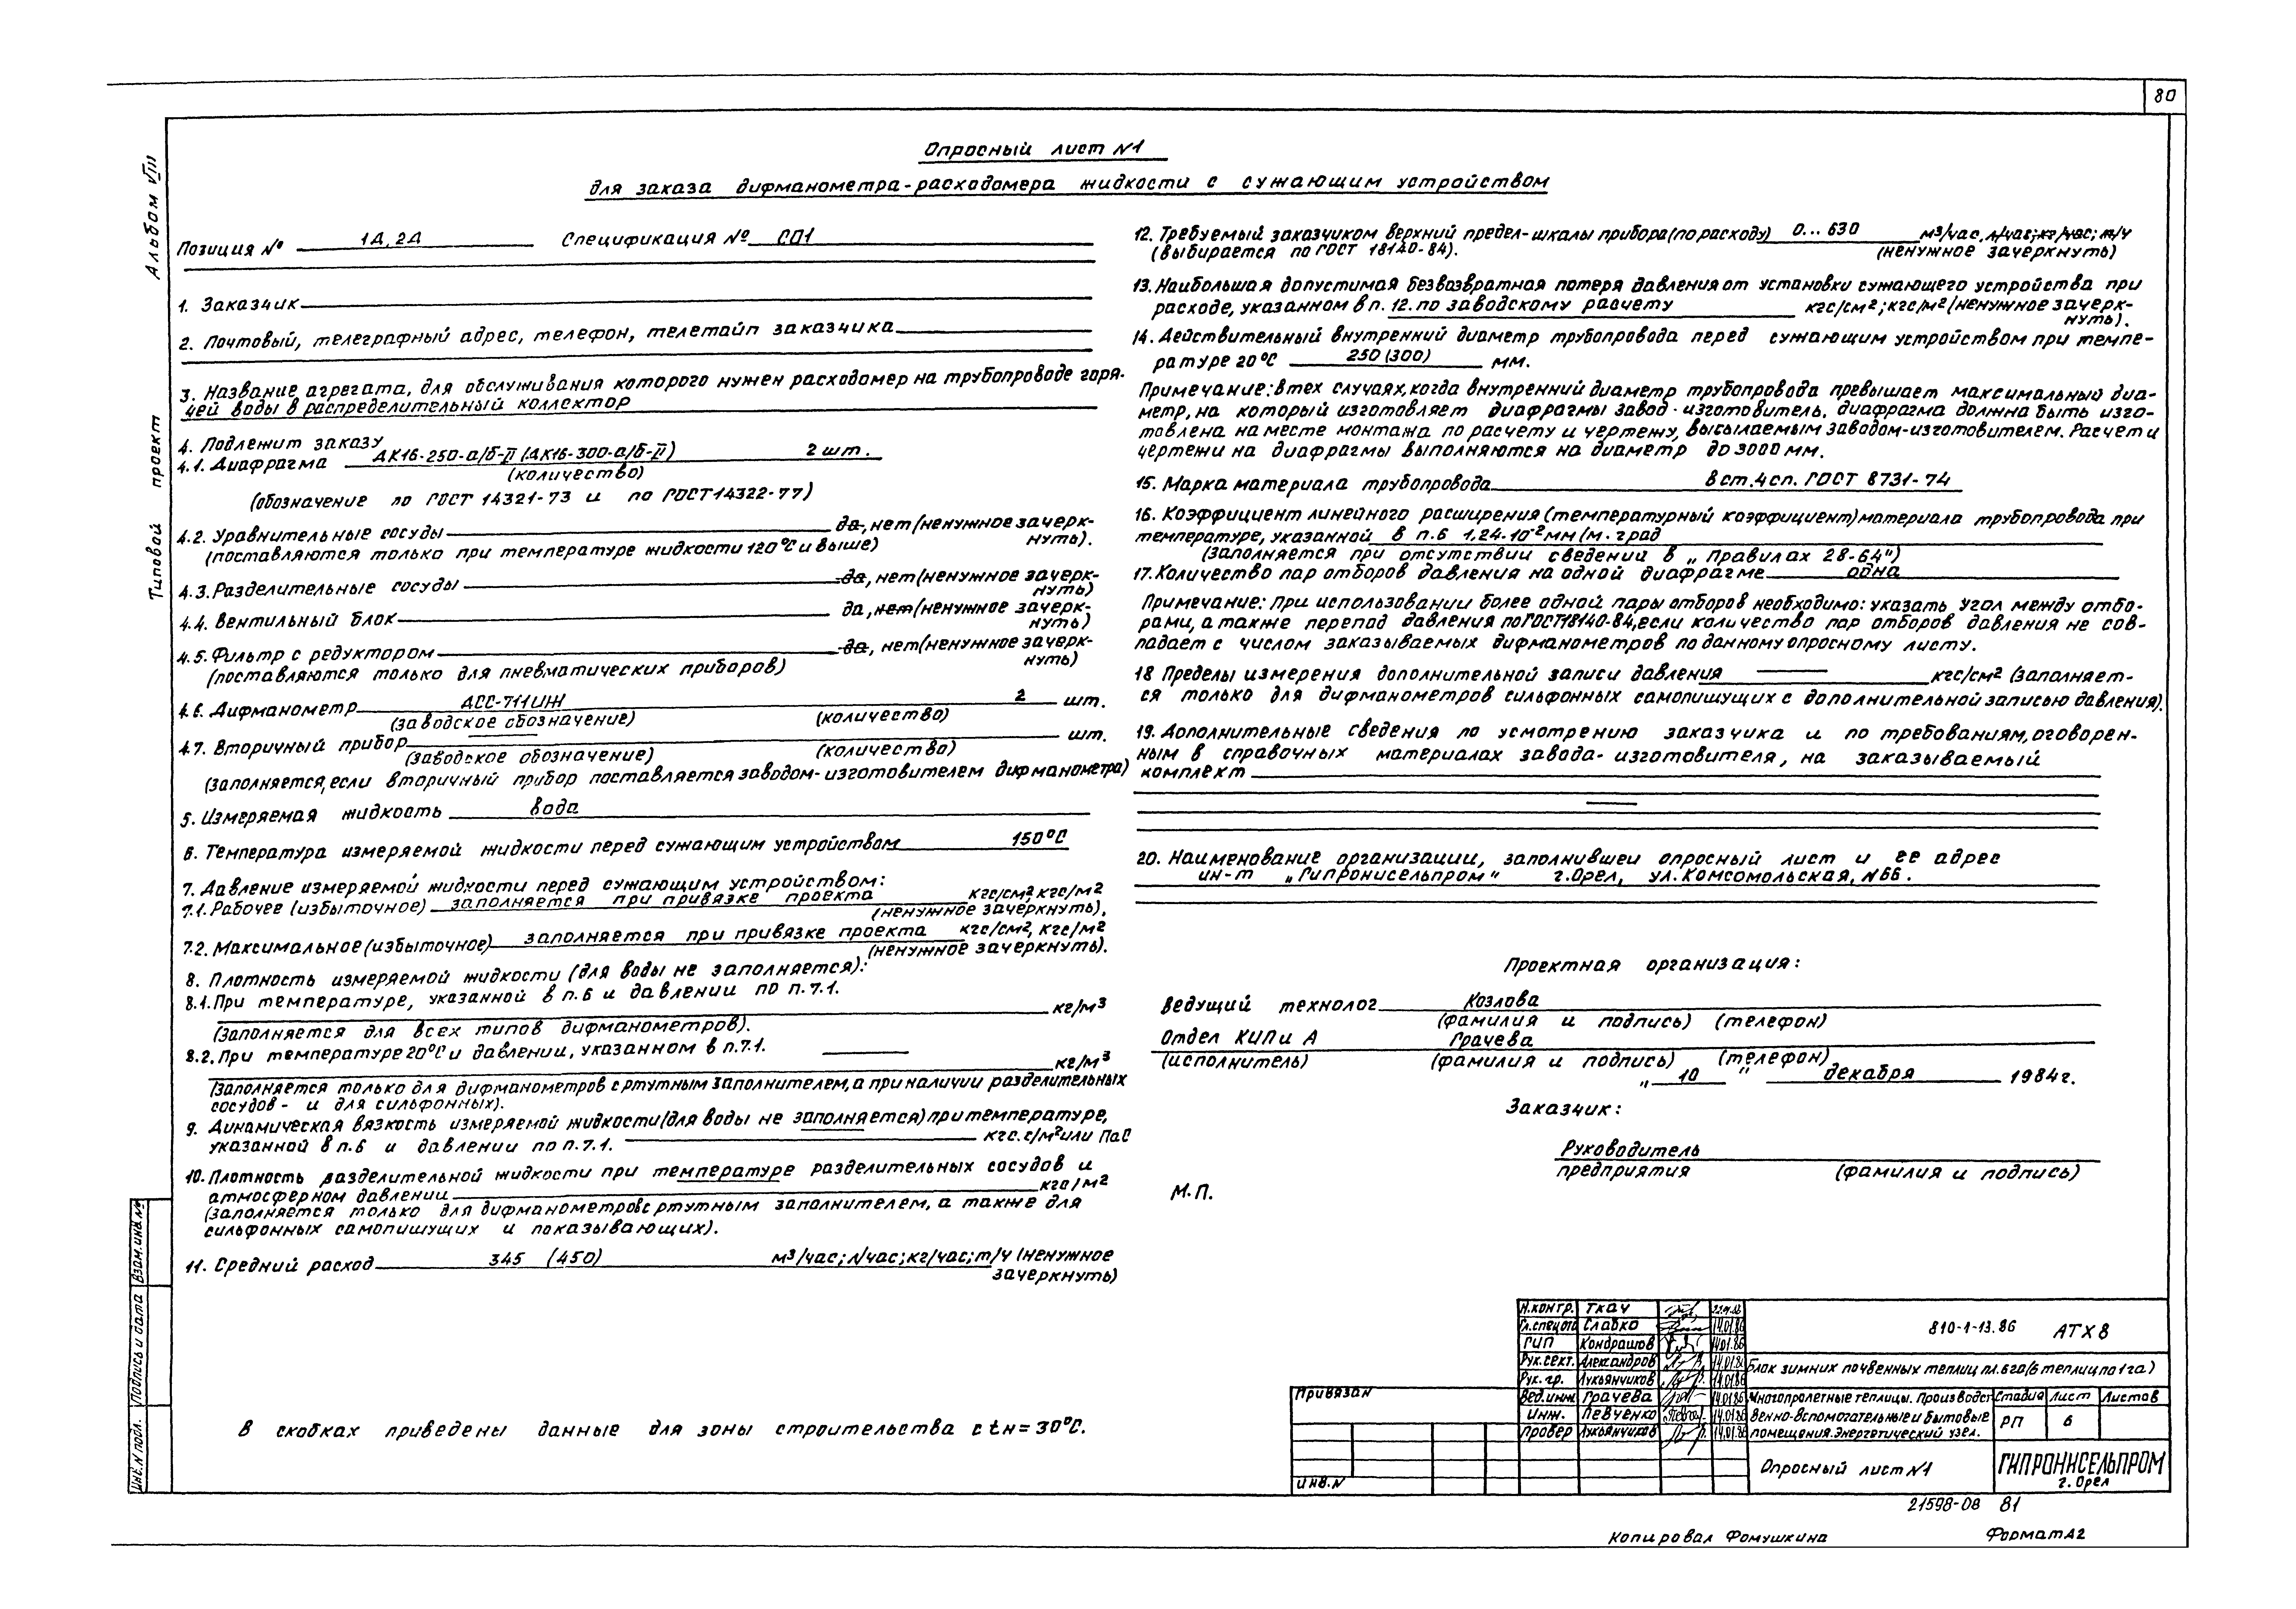 80
Опросный лист №1
для заказа дифманометра-расходомера жидкости с сужающим устройством
Альбом VIII
Типовой проект
Позиция № 1Д, 2Д Спецификация № СП1
1. Заказчик
2. Почтовый, телеграфный адрес, телефон, телетайп заказчика
3. Название агрегата, для обслуживания которого нужен расходомер на трубопроводе горя-
чей воды в распределительный коллектор
4. Подлежит заказу
4.1. Диафрагма ДК16-250-а/б-II (ДК16-300-а/б-II) 2 шт.
(количество)
(обозначение по ГОСТ 14321-73 и по ГОСТ 14322-77)
4.2. Уравнительные сосуды да, нет (ненужное зачерк-
нуть).
(поставляются только при температуре жидкости 120°С и выше)
4.3. Разделительные сосуды да, нет (ненужное зачерк-
нуть)
4.4. Вентильный блок да, нет (ненужное зачерк-
нуть)
4.5. Фильтр с редуктором да, нет (ненужное зачерк-
нуть)
(поставляются только для пневматических приборов)
4.6. Дифманометр ДСС-711ИН 2 шт.
(заводское обозначение) (количество)
4.7. Вторичный прибор шт.
(заводское обозначение) (количество)
(заполняется, если вторичный прибор поставляется заводом-изготовителем дифманометра)
5. Измеряемая жидкость вода
6. Температура измеряемой жидкости перед сужающим устройством 150°С
7. Давление измеряемой жидкости перед сужающим устройством:
7.1. Рабочее (избыточное) заполняется при привязке проекта кгс/см², кгс/м²
(ненужное зачеркнуть),
7.2. Максимальное (избыточное) заполняется при привязке проекта кгс/см², кгс/м²
(ненужное зачеркнуть).
8. Плотность измеряемой жидкости (для воды не заполняется):
8.1. При температуре, указанной в п.6 и давлении по п.7.1.
кг/м³
(Заполняется для всех типов дифманометров).
8.2. При температуре 20°С и давлении, указанном в п.7.1.
кг/м³
(Заполняется только для дифманометров с ртутным заполнителем, а при наличии разделительных
сосудов - и для сильфонных).
9. Динамическая вязкость измеряемой жидкости (для воды не заполняется) при температуре,
указанной в п.6 и давлении по п.7.1. кгс.с/м² или ПаС
10. Плотность разделительной жидкости при температуре разделительных сосудов и
атмосферном давлении кгс/м²
(заполняется только для дифманометров с ртутным заполнителем, а также для
сильфонных самопишущих и показывающих).
11. Средний расход 345 (450) м³/час; л/час; кг/час; т/ч (ненужное
зачеркнуть)
В скобках приведены данные для зоны строительства с tн = 30°С.
12. Требуемый заказчиком верхний предел-шкалы прибора (по расходу) 0...630 м³/час, л/час; кг/час; т/ч
(выбирается по ГОСТ 18140-84). (ненужное зачеркнуть)
13. Наибольшая допустимая безвозвратная потеря давления от установки сужающего устройства при
расходе, указанном в п. 12. по заводскому расчету кгс/см²; кгс/м² (ненужное зачерк-
нуть).
14. Действительный внутренний диаметр трубопровода перед сужающим устройством при темпе-
ратуре 20°С 250 (300) мм.
Примечание: в тех случаях, когда внутренний диаметр трубопровода превышает максимальный диа-
метр, на который изготовляет диафрагмы завод-изготовитель, диафрагма должна быть изго-
товлена на месте монтажа по расчету и чертежу, высылаемым заводом-изготовителем. Расчет и
чертежи на диафрагмы выполняются на диаметр до 3000 мм.
15. Марка материала трубопровода Вст.4сп. ГОСТ 8731-74
16. Коэффициент линейного расширения (температурный коэффициент) материала трубопровода при
температуре, указанной в п.6 1,24·10⁻² мм (м·град
(заполняется при отсутствии сведений в „Правилах 28-64")
17. Количество пар отборов давления на одной диафрагме одна
Примечание: при использовании более одной пары отборов необходимо: указать угол между отбо-
рами, а также перепад давления по ГОСТ 18140-84, если количество пар отборов давления не сов-
падает с числом заказываемых дифманометров по данному опросному листу.
18 Пределы измерения дополнительной записи давления кгс/см² (заполняет-
ся только для дифманометров сильфонных самопишущих с дополнительной записью давления).
19. Дополнительные сведения по усмотрению заказчика и по требованиям, оговорен-
ным в справочных материалах завода-изготовителя, на заказываемый
комплект
20. Наименование организации, заполнившей опросный лист и ее адрес
ин-т „Гипронисельпром" г.Орел, ул.Комсомольская, №66.
Проектная организация:
Ведущий технолог Козлова
(фамилия и подпись) (телефон)
Отдел КИПиА Грачева
(исполнитель) (фамилия и подпись) (телефон)
„ 10 " декабря 1984г.
Заказчик:
Руководитель
предприятия (фамилия и подпись)
М.П.
Инв.N подл. Подпись и дата Взам.инв.№
Привязан
Инв.N
Н.контр. Ткач
Гл.спецотд Славко 14.01.86
ГИП Кондрашов 14.01.86
Рук.сект. Александров 14.01.86
Рук. гр. Лукьянчиков 14.01.86
Вед.инж. Грачева 14.01.86
Инж. Левченко 14.01.86
Провер Лукьянчиков 14.01.86
810-1-13.86 АТХ8
Блок зимних почвенных теплиц пл. 6га (6 теплиц по 1га)
Многопролетные теплицы. Производст-
венно-вспомогательные и бытовые
помещения. Энергетический узел.
Стадия Лист Листов
РП 6
Опросный лист №1
ГИПРОНИСЕЛЬПРОМ
г. Орел
21598-08 81
Копировал Фомушкина Формат А2